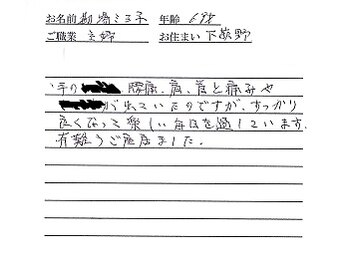 お名前 勘場ミヨネ 年齢 69才
ご職業 主婦 お住まい 下荻野
手の 腰痛、肩、首と痛みや
がれていたのですが、すっかり
良くなって楽しい毎日を過しています。
有難うご座居ました。